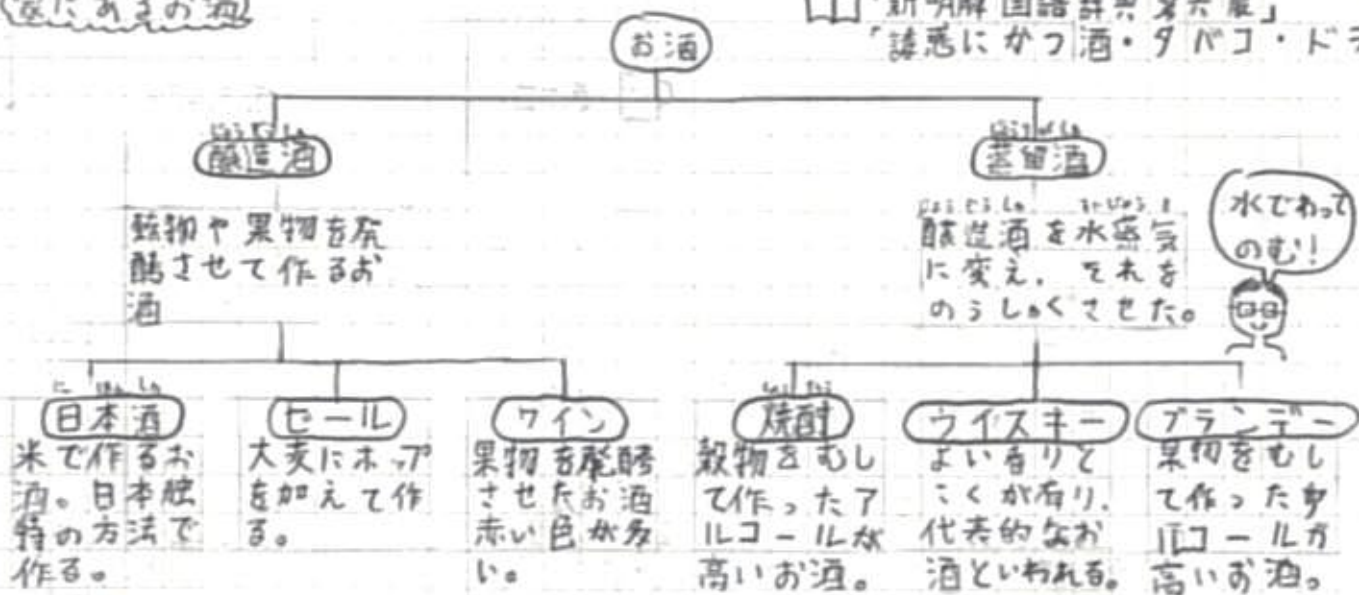 家にあるお酒
「新明解国語辞典 第六版」
「誘惑にかつ酒・タバコ・ドラ
お酒
じょうぞうしゅ
醸造酒
じょうりゅうしゅ
蒸留酒
穀物や果物を発
酵させて作るお
酒
じょうぞうしゅ すいじょうき
醸造酒を水蒸気
に変え、それを
のうしゅくさせた。
水でわって
のむ!
に ほんしゅ
日本酒
米で作るお
酒。日本独
特の方法で
作る。
セール
大麦にホップ
を加えて作
る。
ワイン
果物を発酵
させたお酒
赤い色が多
い。
しょうちゅう
焼酎
穀物をむし
て作ったア
ルコールが
高いお酒。
ウイスキー
よい香りと
こくが有り、
代表的なお
酒といわれる。
ブランデー
果物をむし
て作ったア
ルコールが
高いお酒。